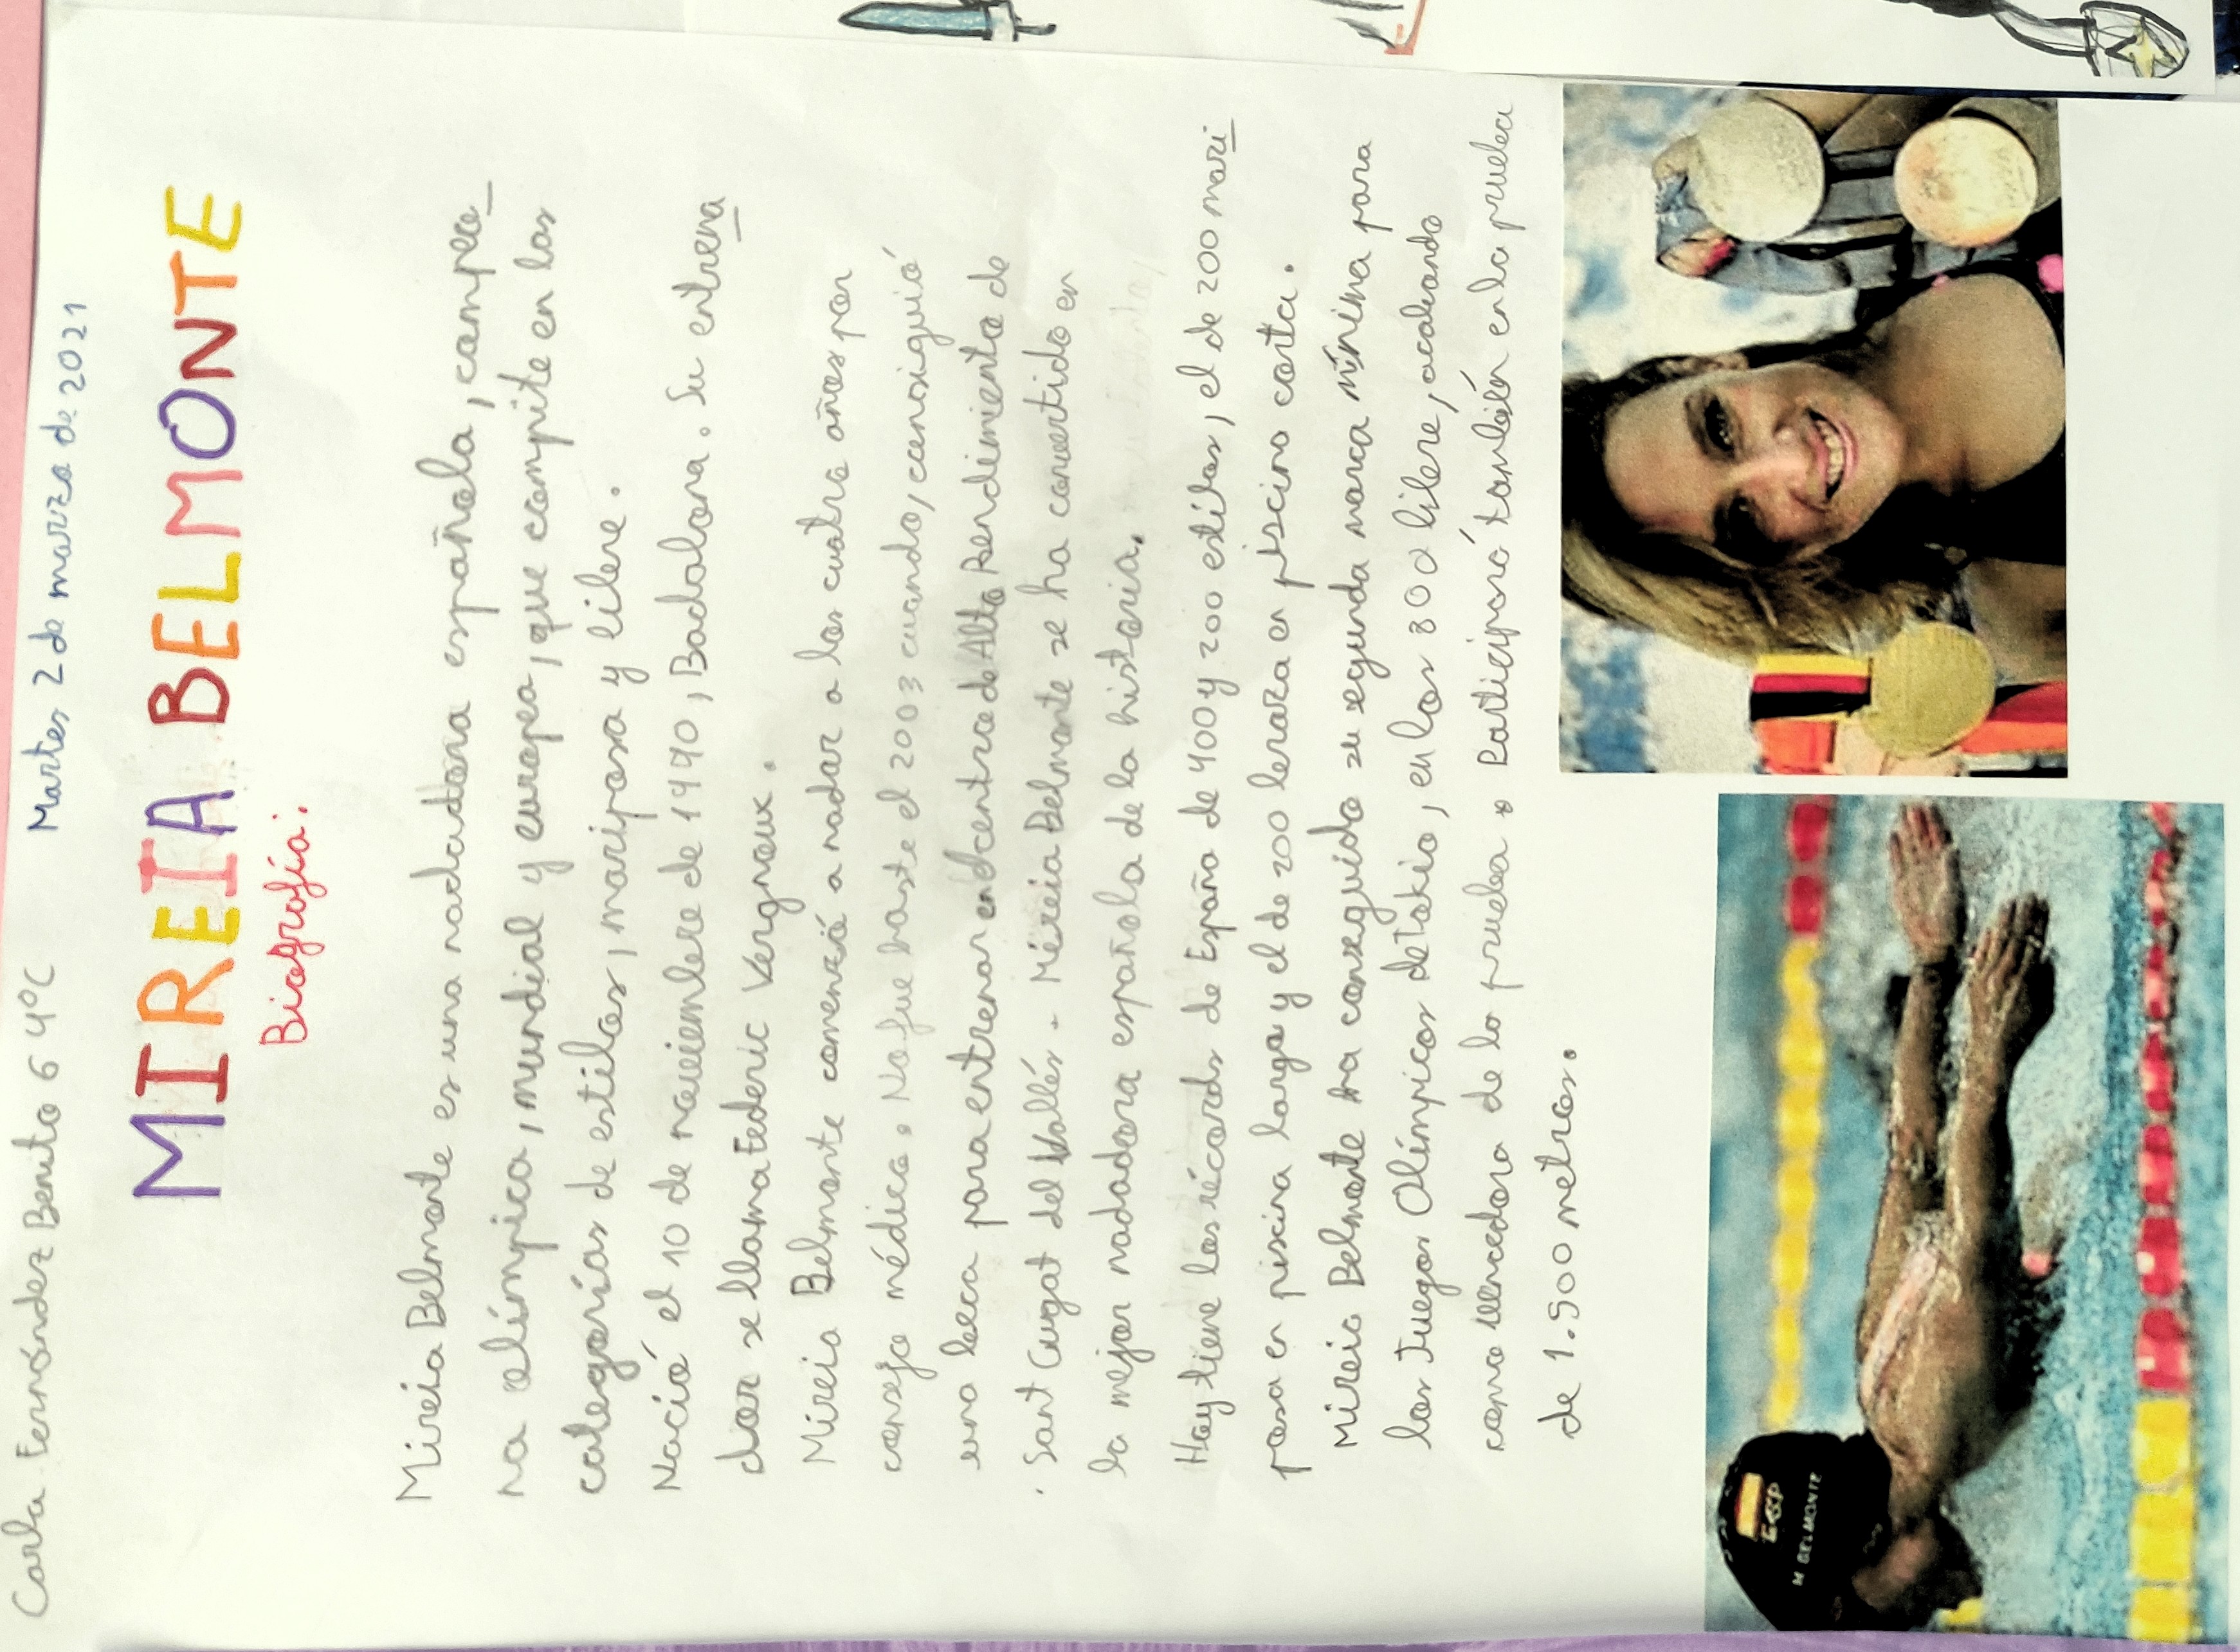 Carla Fernández Benito 6 4ºC Martes 2 de marzo de 2021
MIREIA BELMONTE
Biografía:
Mireia Belmonte es una nadadora española, campeo
na olímpica, mundial y europea, que compite en las
categorías de estilos, mariposa y libre.
Nació el 10 de noviembre de 1990, Badalona. Su entrena
dor se llama Federic Vergnoux.
Mireia Belmonte comenzó a nadar a los cuatro años por
consejo médico. No fue haste el 2003 cuando, consiguió
una beca para entrenar en el centro de Alto Rendimiento de
Sant Cugat del Vallés. Mireia Belmonte se ha convertido en
la mejor nadadora española de la historia.
Hoy tiene los récords de España de 400 y 200 estilos, el de 200 mari
posa en piscina larga y el de 200 braza en piscina corta.
Mireia Belmonte ha conseguido su segunda marca mínima para
los Juegos Olímpicos de Tokio, en los 800 libre, acabando
como vencedora de la prueba. Participará también en la prueba
de 1.500 metros.
ESP
M BELMONTE